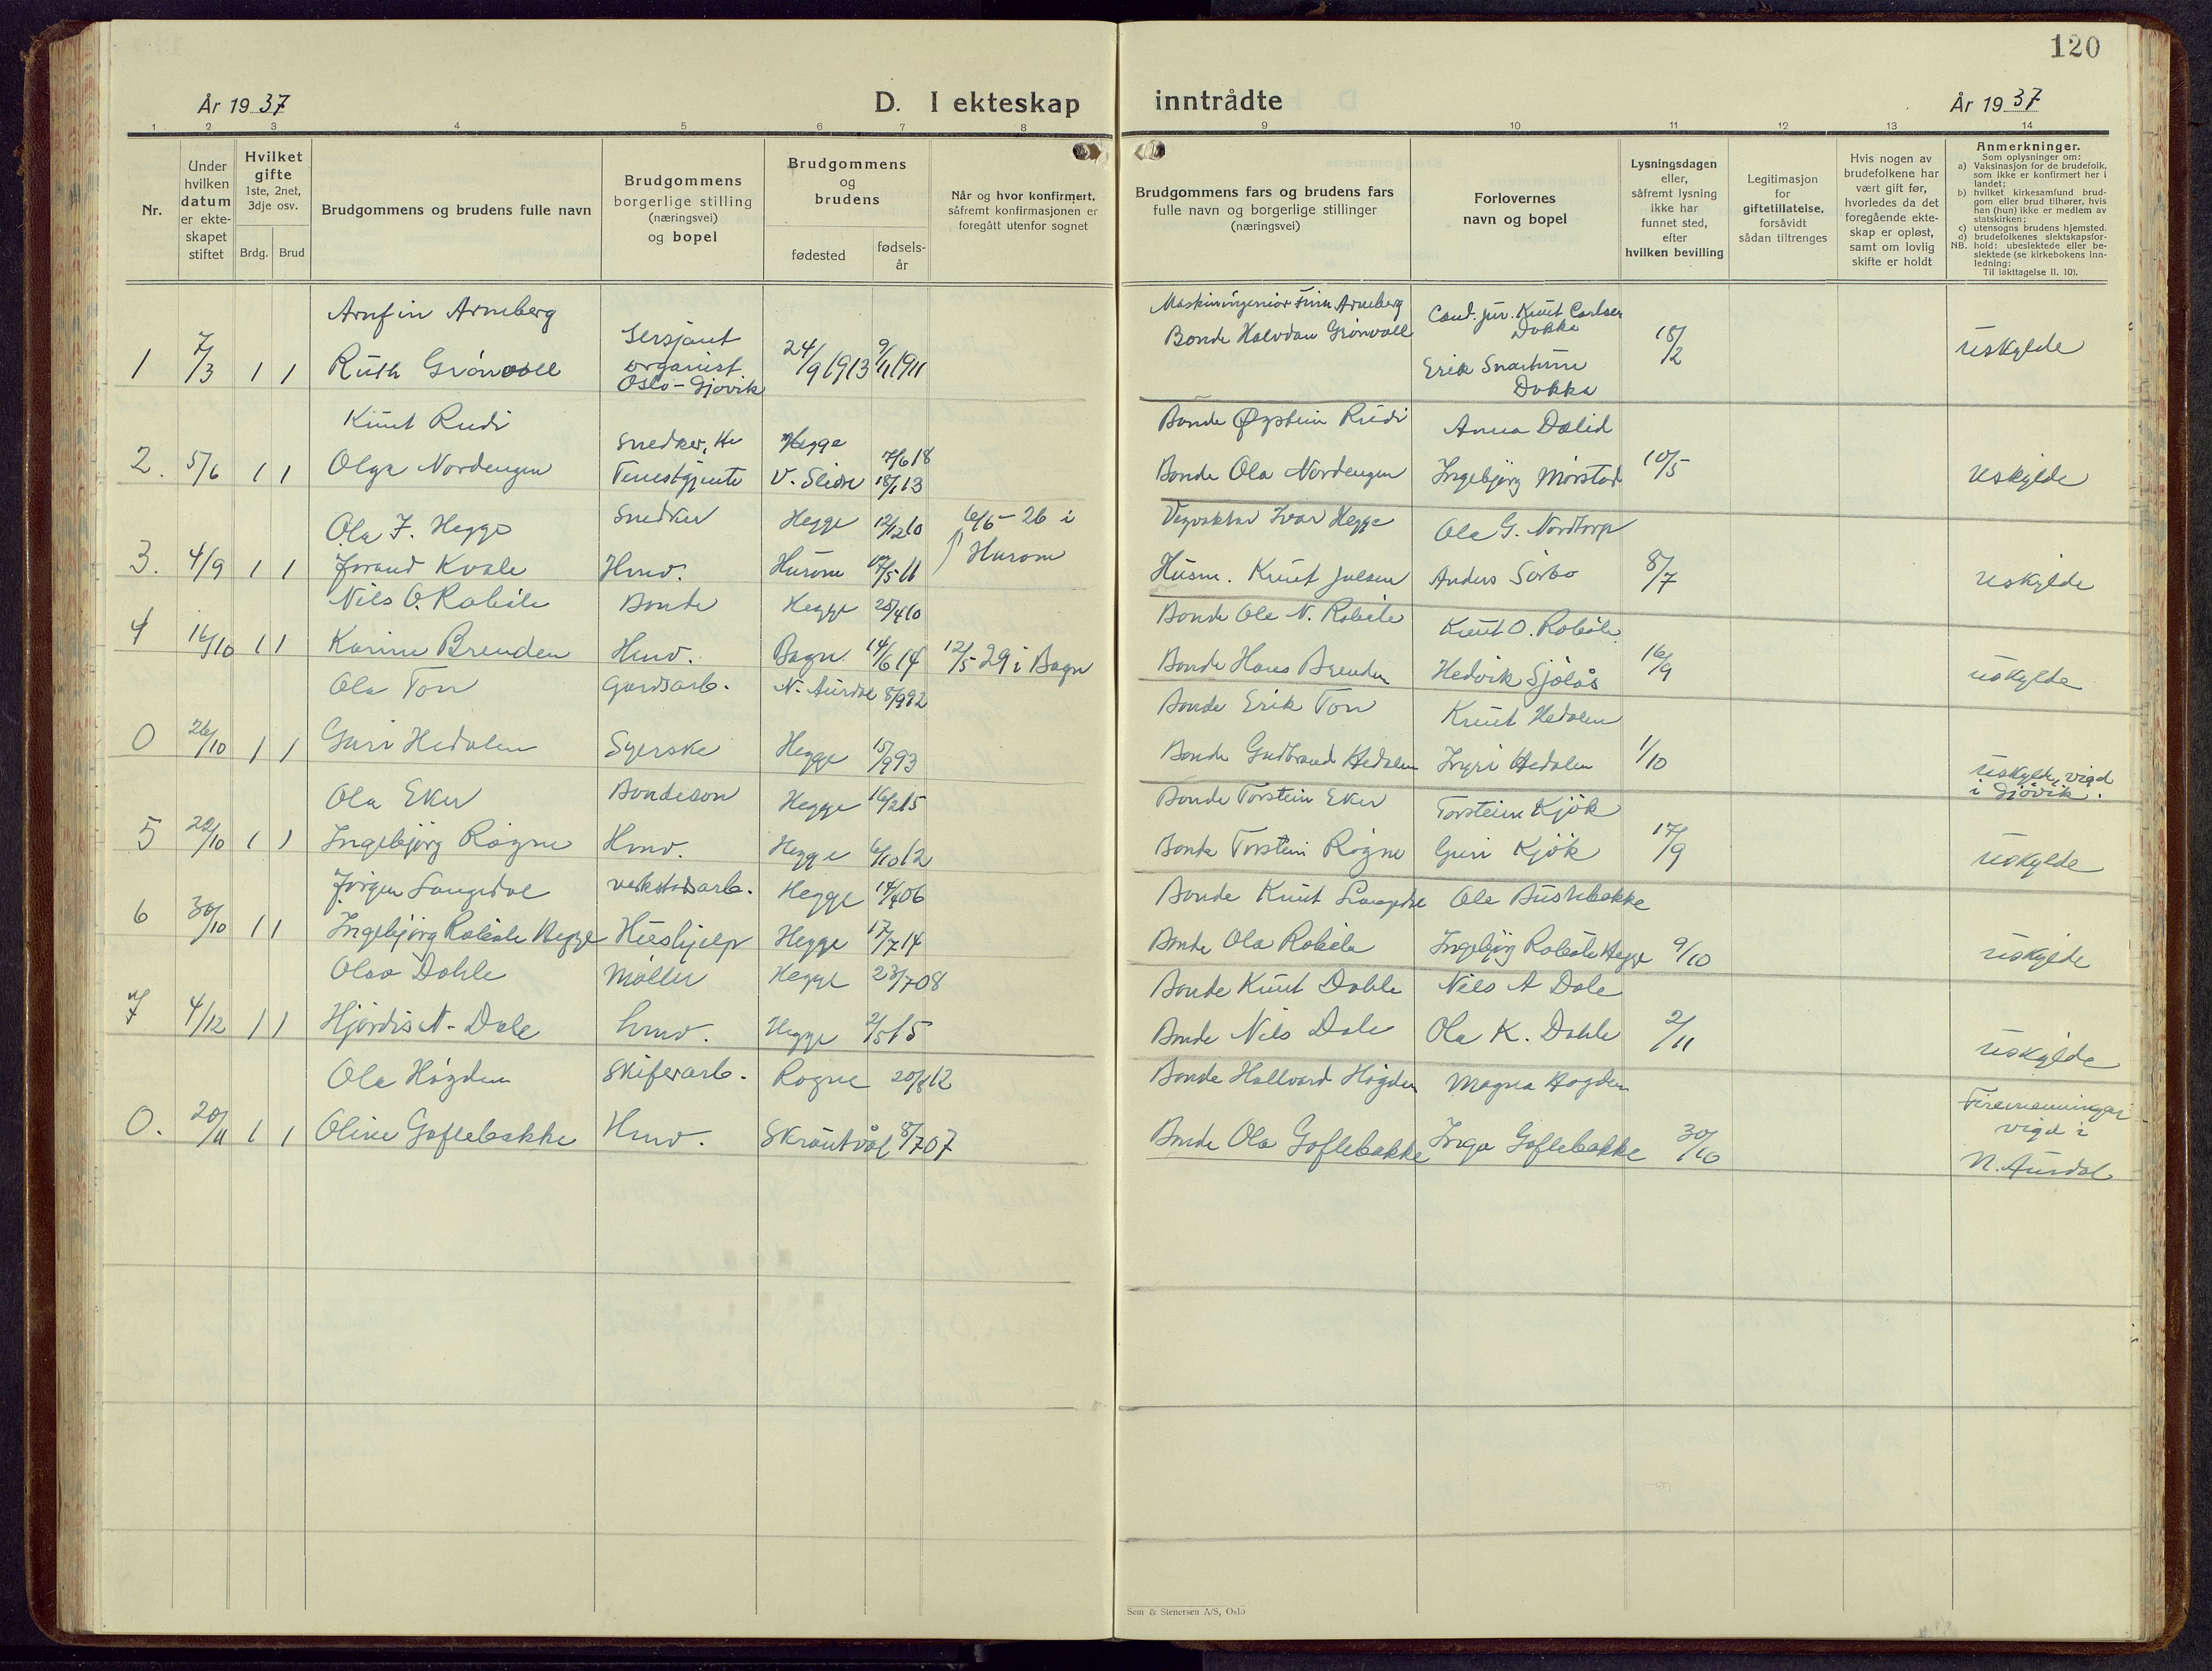 120
År 1937
D. I ekteskap inntrådte
År 1937
1 2 3 4 5 6 7 8 9 10 11 12 13 14
Nr.
Under hvilken datum er ekte-skapet stiftet
Hvilket gifte 1ste, 2net, 3dje osv.
Brdg. Brud
Brudgommens og brudens fulle navn
Brudgommens borgerlige stilling (næringsvei) og bopel
Brudgommens og brudens
fødested
fødsels-år
Når og hvor konfirmert, såfremt konfirmasjonen er foregått utenfor sognet
Brudgommens fars og brudens fars fulle navn og borgerlige stillinger (næringsvei)
Forlovernes navn og bopel
Lysningsdagen eller, såfremt lysning ikke har funnet sted, efter hvilken bevilling
Legitimasjon for giftetillatelse, forsåvidt sådan tiltrenges
Hvis nogen av brudefolkene har vært gift før, hvorledes da det foregående ekte-skap er opløst, samt om lovlig skifte er holdt
Anmerkninger.
Som oplysninger om:
a) Vaksinasjon for de brudefolk, som ikke er konfirmert her i landet;
b) hvilket kirkesamfund brud-gom eller brud tilhører, hvis han (hun) ikke er medlem av statskirken;
c) utensogns brudens hjemsted.
d) brudefolkenes slektskapsfor-
NB. hold: ubeslektede eller be-slektede (se kirkebokens inn-ledning:
Til iakttagelse II. 10).
Arnfin Arneberg Maskiningeniør Finn Arneberg Cand. jur. Knut Carlsen Dokka
1 7/3 1 1 Ruth Grönvoll Sersjant organist Oslo - Gjövik 24/9 1913 9/11 1911 Bonde Halvdan Grönvoll Erik Dokka 18/2 uskylde
Knut Rudi Snedker, Hegge 7/6 18 Bonde Øystein Rudi Anna Dalid
2. 5/6 1 1 Olga Nordengen Tenestgjente V. Slidre 18/1 13 Bonde Ola Nordengen Ingebjörg Mörstad 10/5 uskylde
Ola I. Hegge Snedker Hegge 12/12 10 6/6 - 26 i Vegvaktar Ivar Hegge Ola G. Nordtorp
3. 4/9 1 1 Jorand Kvale Hmv. Hurum 17/5 11 Hurom Husm. Knut Julsen Anders Sörbo 8/7 uskylde
Nils O. Roböle Bonde Hegge 25/4 10 Bonde Ole N. Roböle Knut O. Roböle
4 16/10 1 1 Karine Brenden Hmv. Bagn 14/6 14 12/5 29 i Bagn Bonde Hans Brenden Hedvik Sjölås 16/9 uskylde
Ola Ton Gardsarb. N. Aurdal 8/9 92 Bonde Erik Ton Knut Hedalen
0 26/10 1 1 Guri Hedalen Syerske Hegge 15/9 93 Bonde Gudbrand Hedalen Ingri Hedalen 1/10 uskylde, vigd i Gjövik.
Ola Eker Bondeson Hegge 16/2 15 Bonde Torstein Eker Torstein Kjök
5 22/10 1 1 Ingebjörg Rogne Hmv. Hegge 6/10 12 Bonde Torstein Rogne Guri Kjök 17/9 uskylde
Jörgen Langedal verkstadsarb. Hegge 14/4 06 Bonde Knut Langedal Ole Bustebakke
6 30/10 1 1 Ingebjörg Roböle Hegge Hushjelp Hegge 17/7 14 Bonde Ola Roböle Ingebjörg Roböle Hegge 9/10 uskylde
Olav Dahle Möller Hegge 23/7 08 Bonde Knut Dahle Nils A Dale
7 4/12 1 1 Hjördis N. Dale hmv. Hegge 2/5 15 Bonde Nils Dale Ola K. Dahle 2/11 uskylde
Ola Högden Skiferarb. Rogne 20/8 12 Bonde Hallvard Högden Magna Högden
0. 20/11 1 1 Oline Goflebakke Hmv. Skrautvål 8/7 07 Bonde Ola Goflebakke Inga Goflebakke 30/10 Firemenningar vigd i N. Aurdal
Sem & Stenersen A/S, Oslo